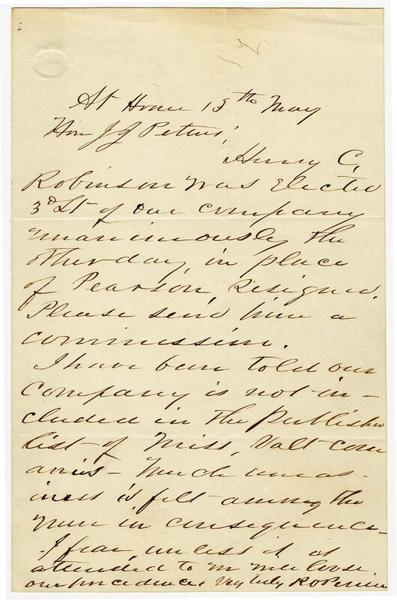 At Home 15th May
Hon J J Pettus,
Henry C.
Robinson was Elected
3d Lt of our company
unanimously the
other day in place
of Pearson, Resigned.
Please send him a
commission.
I have been told our
Company is not in-
cluded in the Published
list of Miss. Volt Com
anies - Much uneas-
iness is felt among the
men in consequence -
I fear, unless it is
attended to we lose
our precedence. Very truly